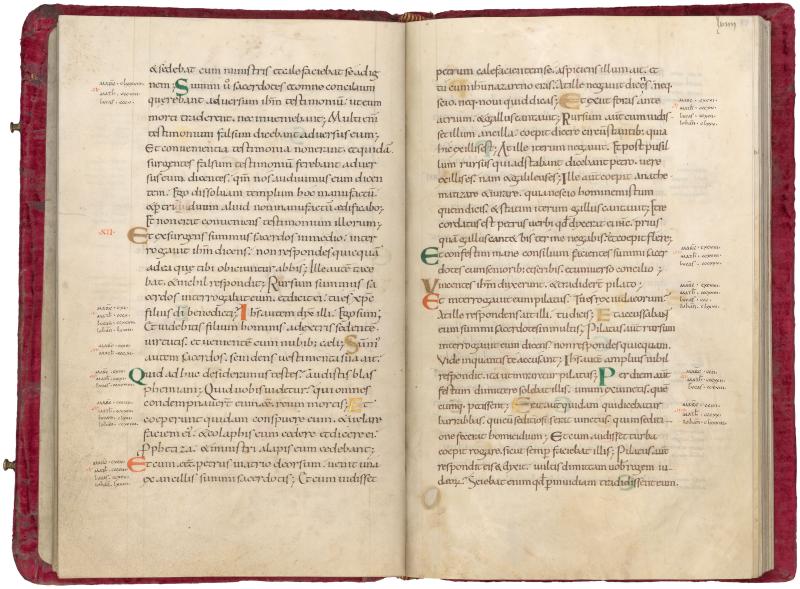 & sedebat cum ministris & calefaciebat se ad ig
nem; Summi ů sacerdotes & omne concilium
querebant adversum ihm testimonium ut eum
morti traderent. nec inveniebant; Multi enī
testimonium falsum dicebant adversus eum;
Et convenientia testimonia non erant. & quidā
surgentes falsum testimoniū ferebant adver
sus eum. dicentes. qm̄ nos audivimus eum dicen
tem. Ego dissolvam templum hoc manufactū.
& p triduum aliud non manufactū edificabo;
Et non erat conveniens testimonium illorum;
XII. Et exsurgens summus sacerdos in medio. inter
rogavit ihm dicens. non respondes quicquā
ad ea quę tibi obiciuntur ab his; Ille aut̄ tace
bat. & nichil respondit; Rursum summus sa
cerdos interrogabat eum. & dicit ei. tu es xp̄c
filius dī benedicti; Ihs aut̄ dix̄ illi. Ego sum;
Et videbitis filium hominis. a dextris sedentē
virtutis. et venientē cum nubib; cęli; Summ'
autem sacerdos. scindens vestimenta sua ait.
Quid adhuc desideramus testes. audistis blas
phemiam; Quid vobis videtur. qui omnes
condempnaverunt eum. eē reum mortis; Et
coeperunt quidam conspuere eum. & velare
faciem ei'. & colaphis eum cedere et dicere ei.
Pphetiza. & ministri alapis eum cedebant;
Et cum eēt petrus in atrio deorsum. venit una
ex ancillis summi sacerdotis; Et cum vidisset
petrum calefacientem se. aspiciens illum ait. et
tu cum ihu nazareno eras. At ille negavit dicēs. neq;
scio. neq; novi quid dicas; Et exiit foras ante
atrium. & gallus cantavit; Rursum aut̄ cum vidis
set illum ancilla. coepit dicere circūstantib; quia
hic ex illis est; At ille iterum negavit. Et post pusil
lum rursus qui adstabant dicebant petro. vere
ex illis es. nam & galileus es; Ille aut̄ coepit anathe
matizare & iurare. quia nescio hominem istum
quem dicitis. & statim iterum gallus cantavit; Et re
cordatus est petrus verbi qđ dixerat ei ihc. prius
quā gallus cantet bis. ter me negabis. et coepit flere;
Et confestim mane consilium facientes summi sacer
dotes cum senioribus et scribis. et universo concilio;
Vincientes ihm duxerunt. & tradider̄ pilato;
Et interrogavit eum pilatus. Tu es rex iudæorum;
At ille respondens ait illi. tu dicis; Et accusabant
eum summi sacerdotes in multis; Pilatus aut̄ rursum
interrogavit eum dicens. non respondes quicquam.
Vide in quantis te accusant; Ihs aut̄ amplius nihil
respondit. ita ut miraretur pilatus; Per diem aut̄
festum dimittere solebat illis. unum ex vinctis. quē
cumq; petissent; Erat aut̄ quidam qui dicebatur
barrabbas. qui cum seditiosis erat vinctus. qui in sediti
one fecerat homicidium; Et cum ascendisset turba
coepit rogare. sicut semp faciebat illis; Pilatus aut̄
respondit eis & dixit. vultis dimittam vobis regem iu
dæor̄; Sciebat enim qđ p invidiam tradidissent eum.